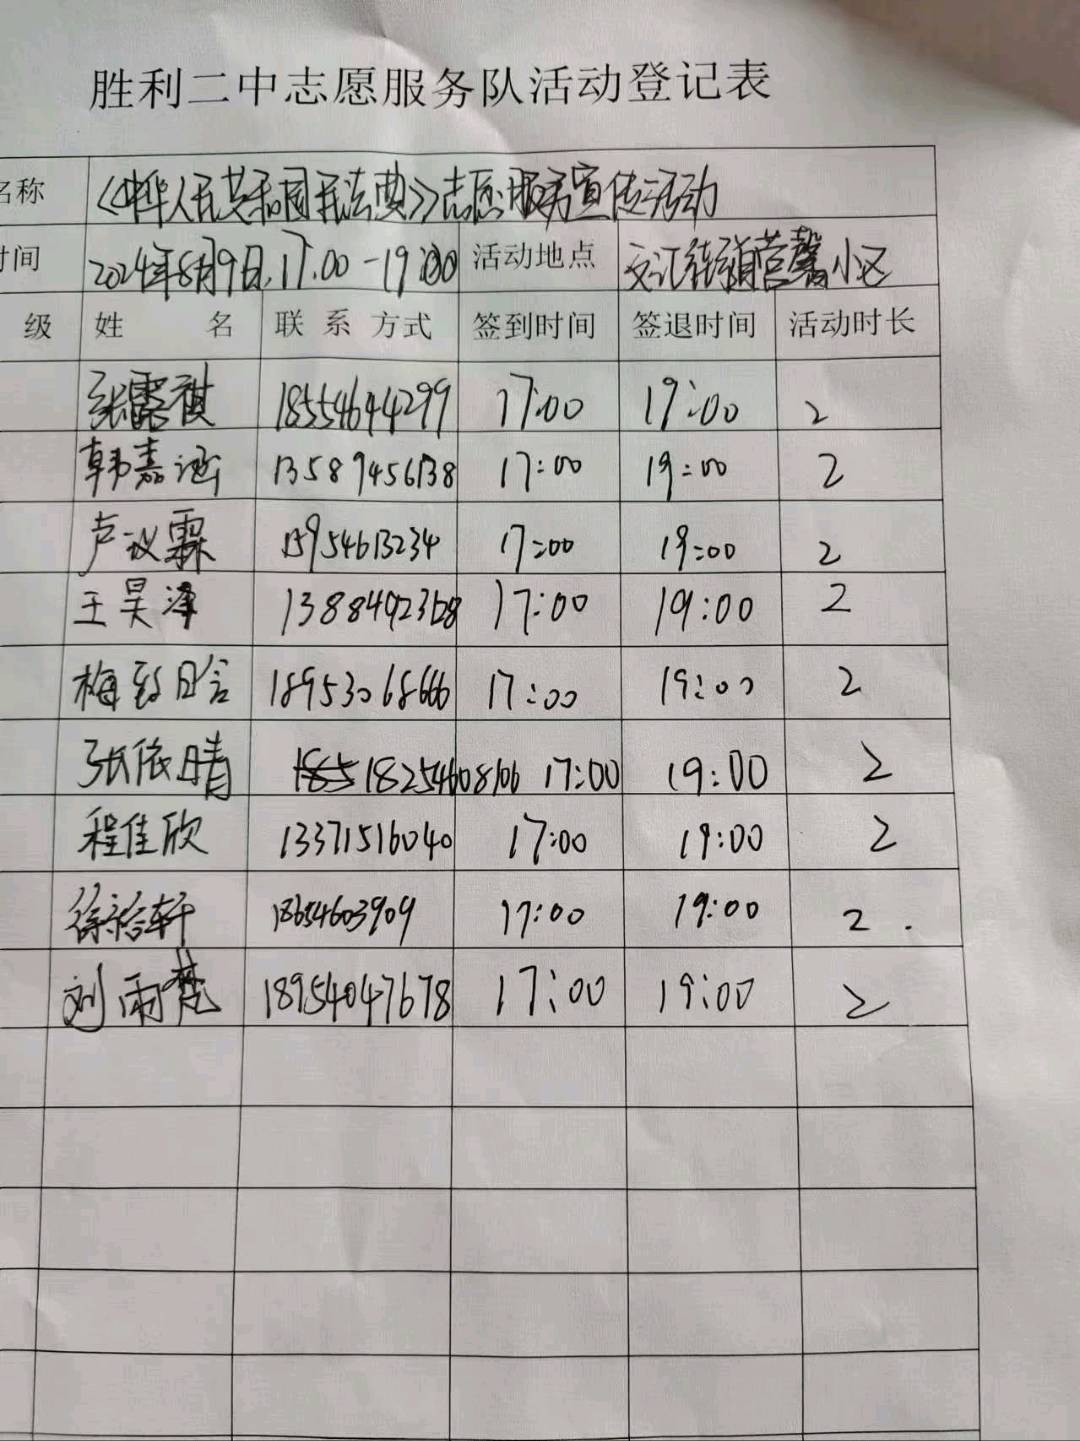 胜利二中志愿服务队活动登记表
名称 《中华人民共和国民法典》志愿服务宣传活动
时间 2024年8月9日,17:00-19:00 活动地点 文汇街道 馨小区
级 姓 名 联系方式 签到时间 签退时间 活动时长
张 祺 18554644299 17:00 19:00 2
韩嘉涵 13589456138 17:00 19:00 2
卢议霖 13954613234 17:00 19:00 2
王昊泽 17:00 19:00 2
梅 晗 18953068666 17:00 19:00 2
张依晴 18254608106 17:00 19:00 2
程佳欣 13371516040 17:00 19:00 2
徐 轩 18654603909 17:00 19:00 2.
刘雨梵 18954047678 17:00 19:00 2